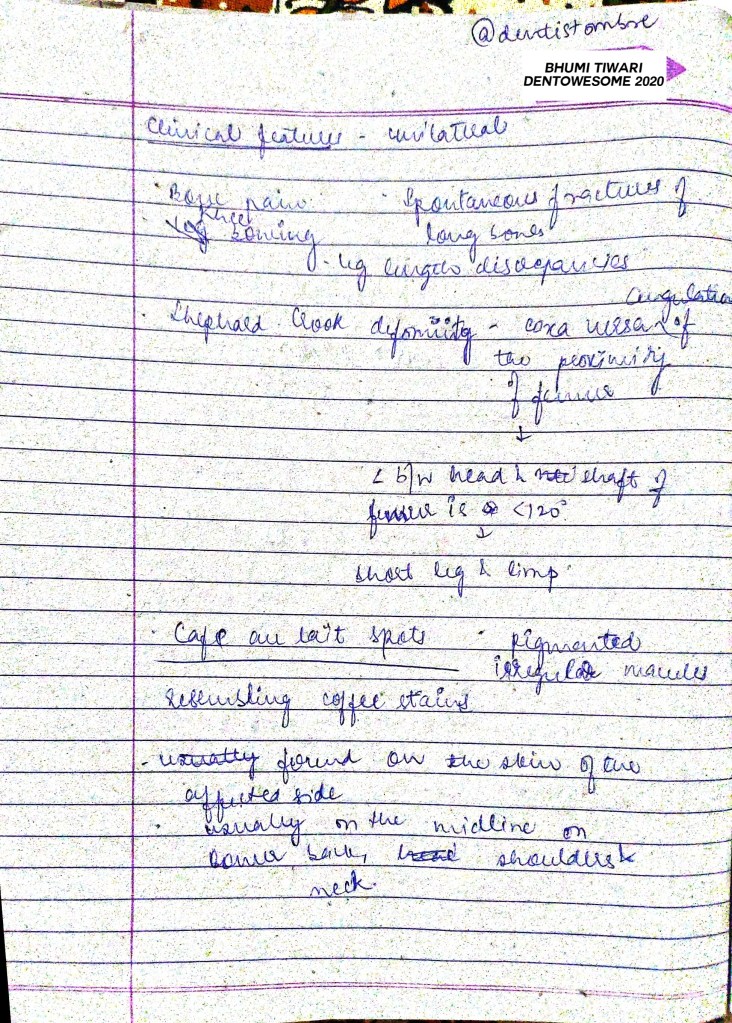 @dentistombre
BHUMI TIWARI
DENTOWESOME 2020
Clinical features - unilateral
· Bone pain · Spontaneous fractures of
Knee
bowing long bones
- leg length discrepancies
angulation
· Shephard Crook deformity - coxa of
the proximity
of femur
↓
∠ b/w head & shaft of
femur is <120°
↓
short leg & limp
· Cafe au lait spots · pigmented
irregular macules
resembling coffee stains
- usually found on the skin of the
affected side
· usually on the midline on
lower back, shoulders &
neck.